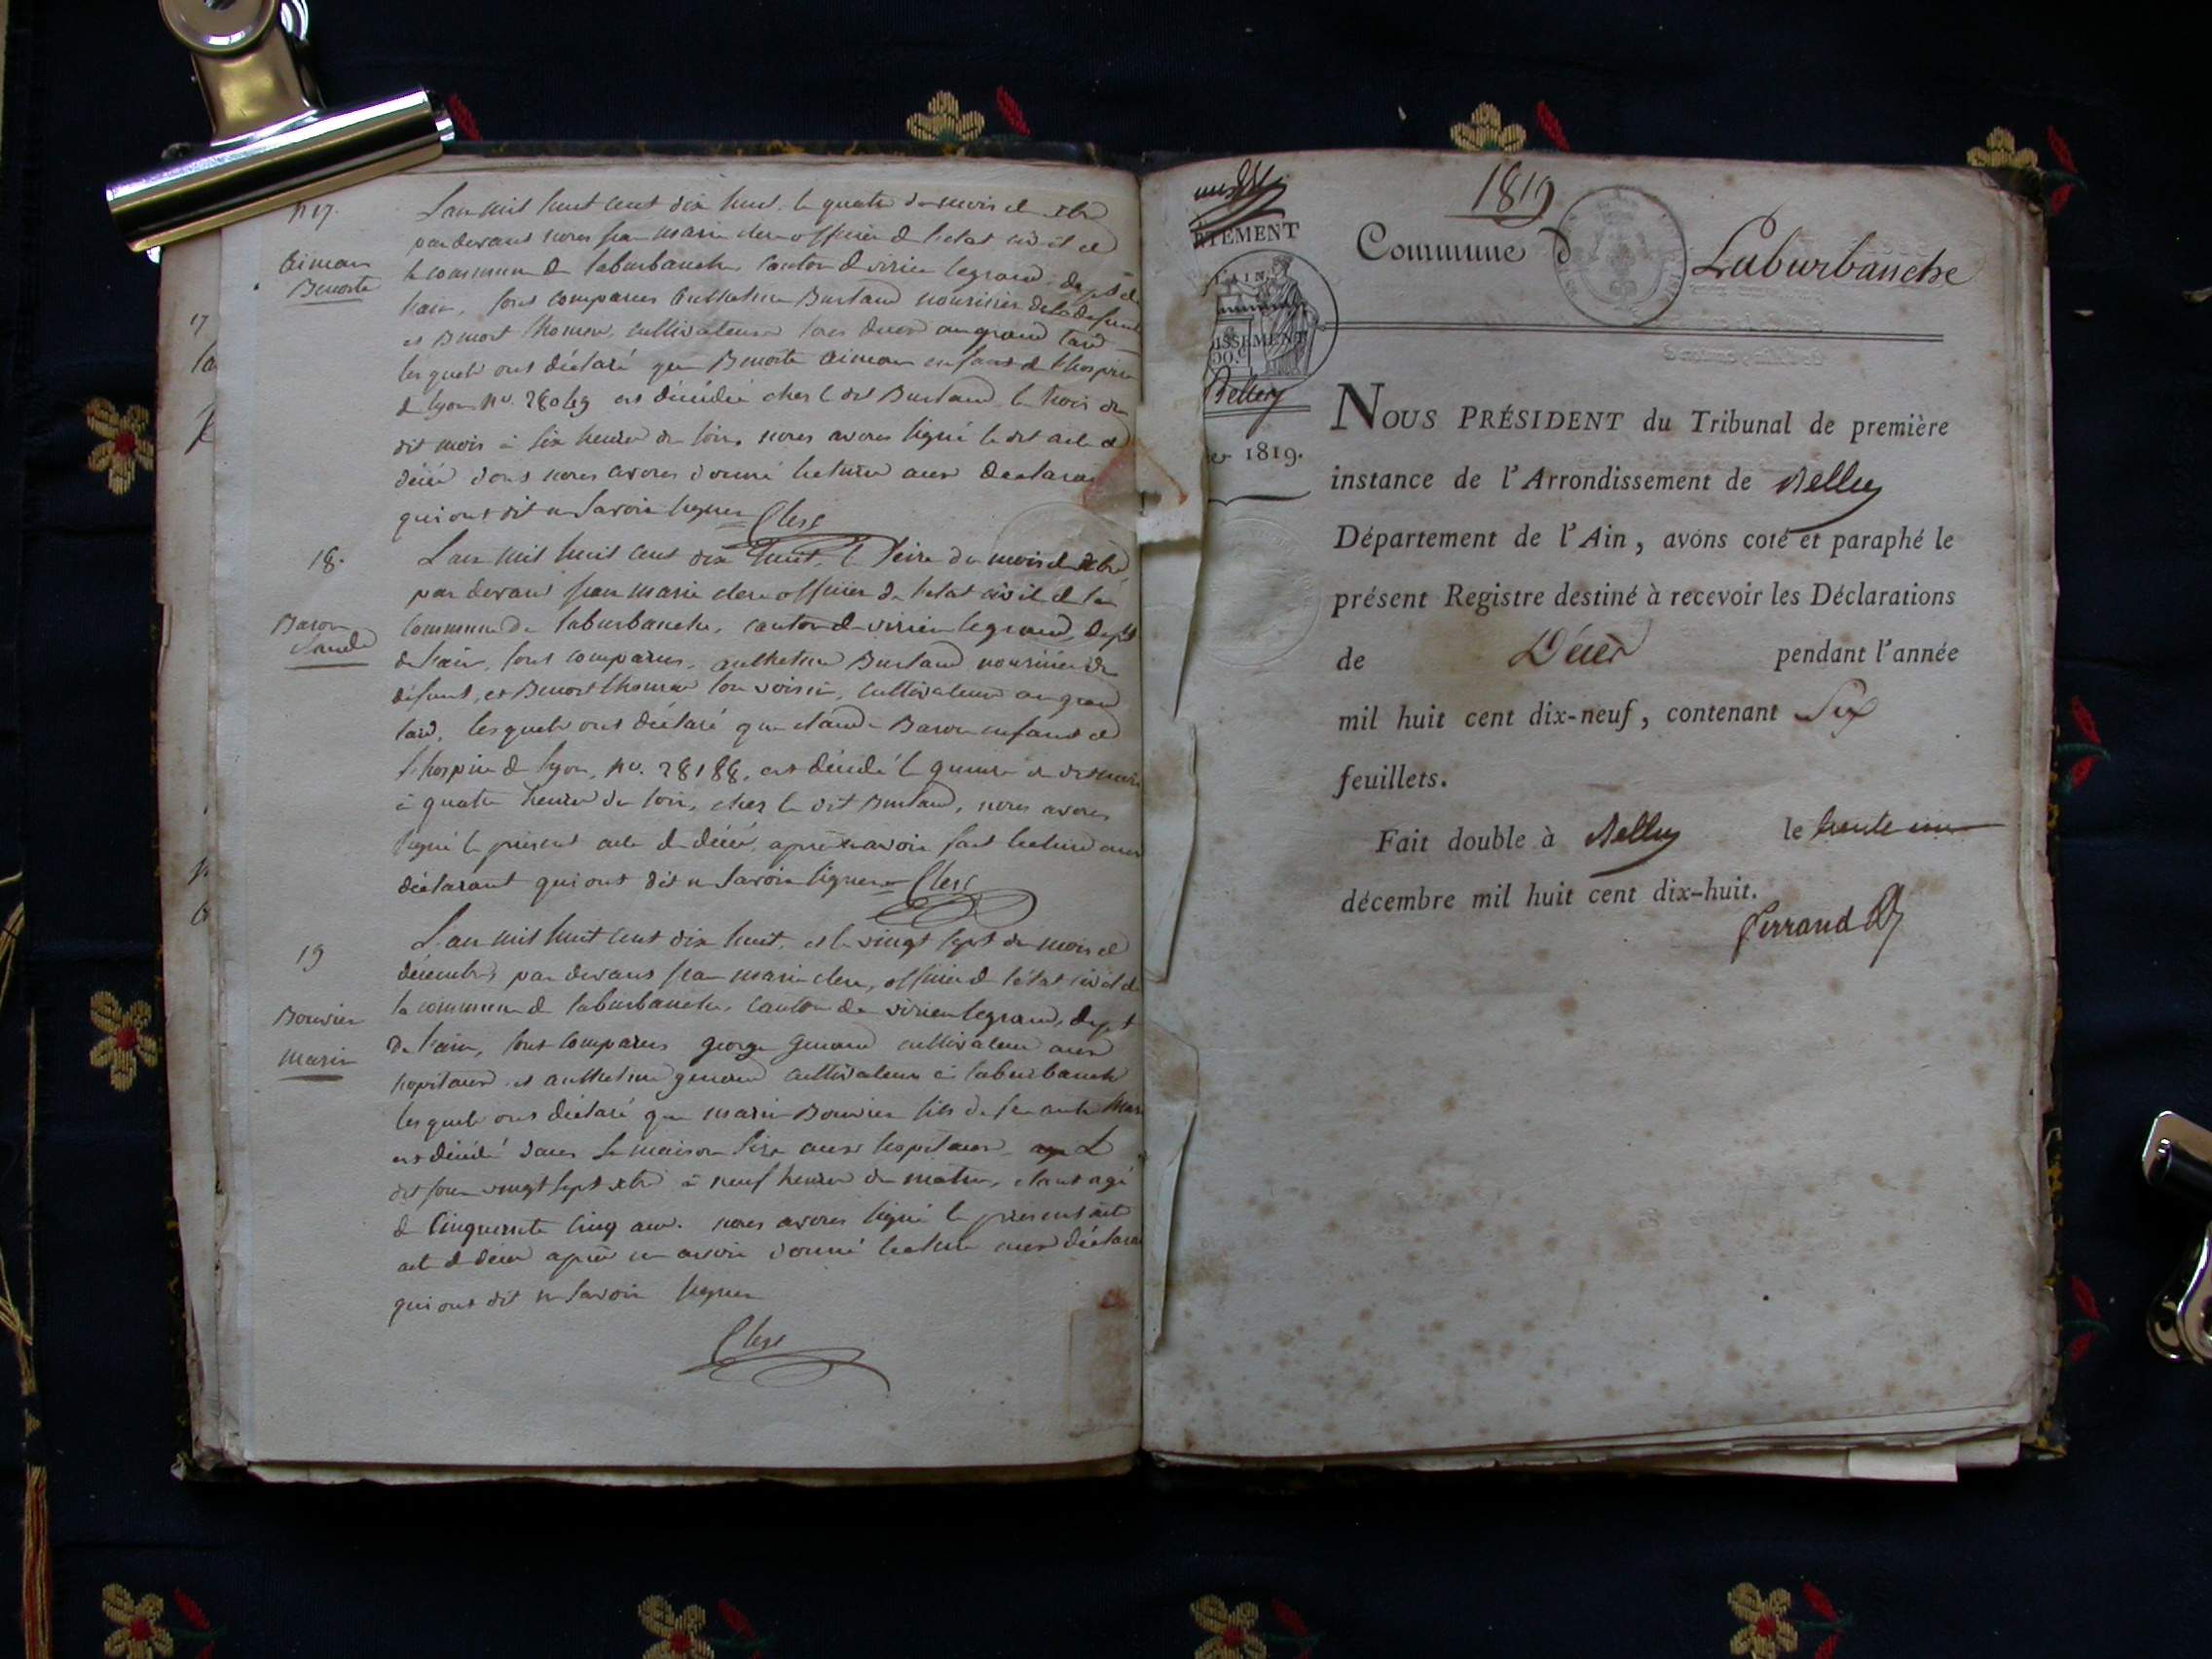 n 17.
Aimon
Benoite
L'an mil huit cent dix huit, le quatre du mois de xbre
par devant nous jean marie clerc officier de l'etat civil de
la commune de laburbanche, canton de virieu legrand, dept de
l'ain, sont comparus Anthelme Burtand nourisier de la defunte
et Benoit thomen, cultivateurs
lesquels ont déclaré que Benoite Aimon enfant de l'hospice
de lyon no. est décédée chez le dit Burtand le trois du
dit mois à six heures du soir, nous avons signé le dit acte de
décès dont nous avons donné lecture aux déclarants
qui ont dit ne savoir signer Clerc
18.
Baron
Claude
L'an mil huit cent dix huit, le seize du mois de xbre
par devant jean marie clerc officier de l'etat civil de la
commune de laburbanche, canton de virieu legrand, dept
de l'ain, sont comparus, anthelme Burtand nourisier du
défunt, et Benoit thomen son voisin, cultivateurs au grand
lesquels ont déclaré que claude Baron enfant de
l'hospice de lyon, no. 28188, est décédé le quinze du dit mois
à quatre heures du soir, chez le dit Burtand, nous avons
signé le présent acte de décès, après en avoir fait lecture aux
déclarant qui ont dit ne savoir signer Clerc
19
Bouvier
Marin
L'an mil huit cent dix huit, et le vingt sept du mois de
décembre, par devant jean marie clerc, officier de l'état civil de
la commune de laburbanche, canton de virieu legrand, dept
de l'ain, sont comparus george genand cultivateur aux
hopitaux et anthelme genand cultivateur à laburbanche
lesquels ont déclaré que marin Bouvier fils de feu
est décédé dans sa maison sise aux hopitaux le
dit jour vingt sept xbre à neuf heures du matin, étant agé
de cinquante cinq ans. nous avons signé le présent
acte de décès après en avoir donné lecture aux déclarants
qui ont dit ne savoir signer
Clerc
1819
Commune d Laburbanche
DÉPARTEMENT
L'AIN
ISSEMENT
Belley
1819.
NOUS PRÉSIDENT du Tribunal de première
instance de l'Arrondissement de Belley
Département de l'Ain, avons coté et paraphé le
présent Registre destiné à recevoir les Déclarations
de Décès pendant l'année
mil huit cent dix-neuf, contenant Six
feuillets.
Fait double à Belley le trente un
décembre mil huit cent dix-huit.
Ferrand